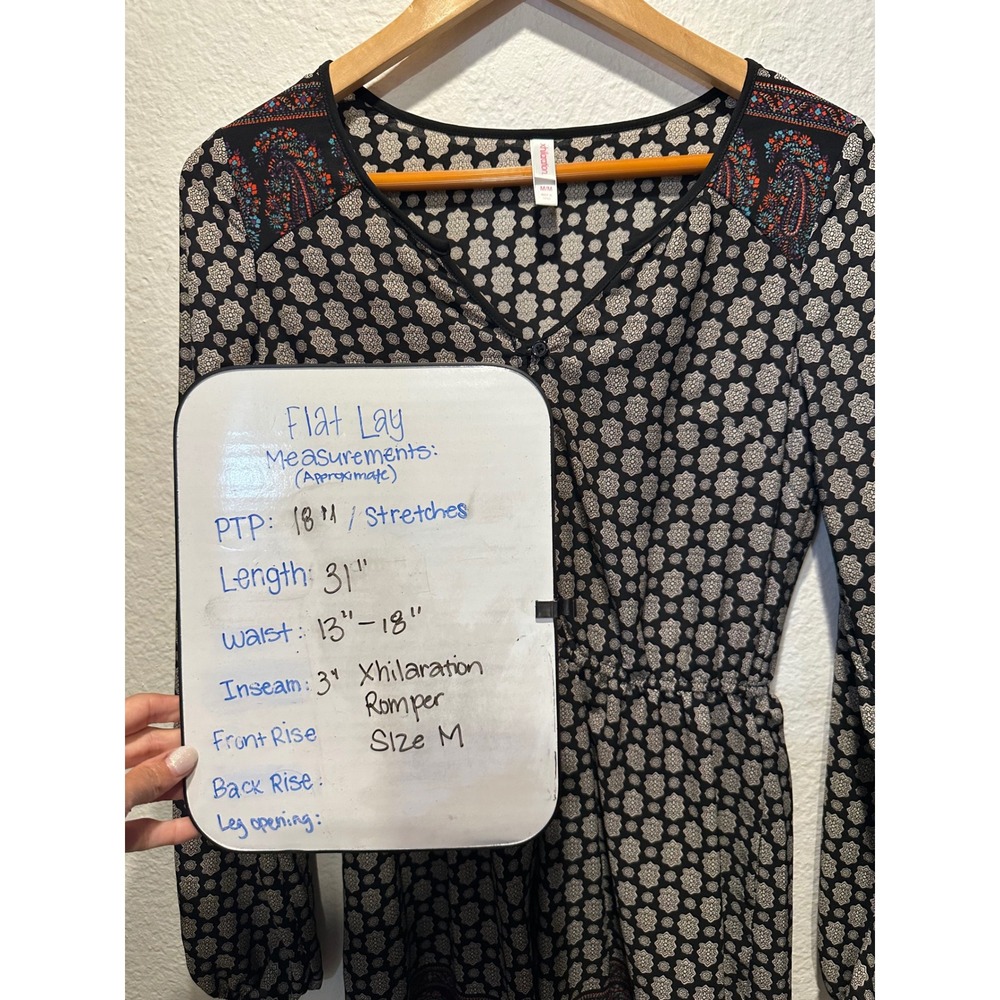 xhilaration
M/M
Flat Lay
Measurements:
(Approximate)
PTP: 18" / Stretches
Length: 31"
Waist: 13"-18"
Inseam: 3" Xhilaration
Romper
Front Rise
Size M
Back Rise:
Leg opening: